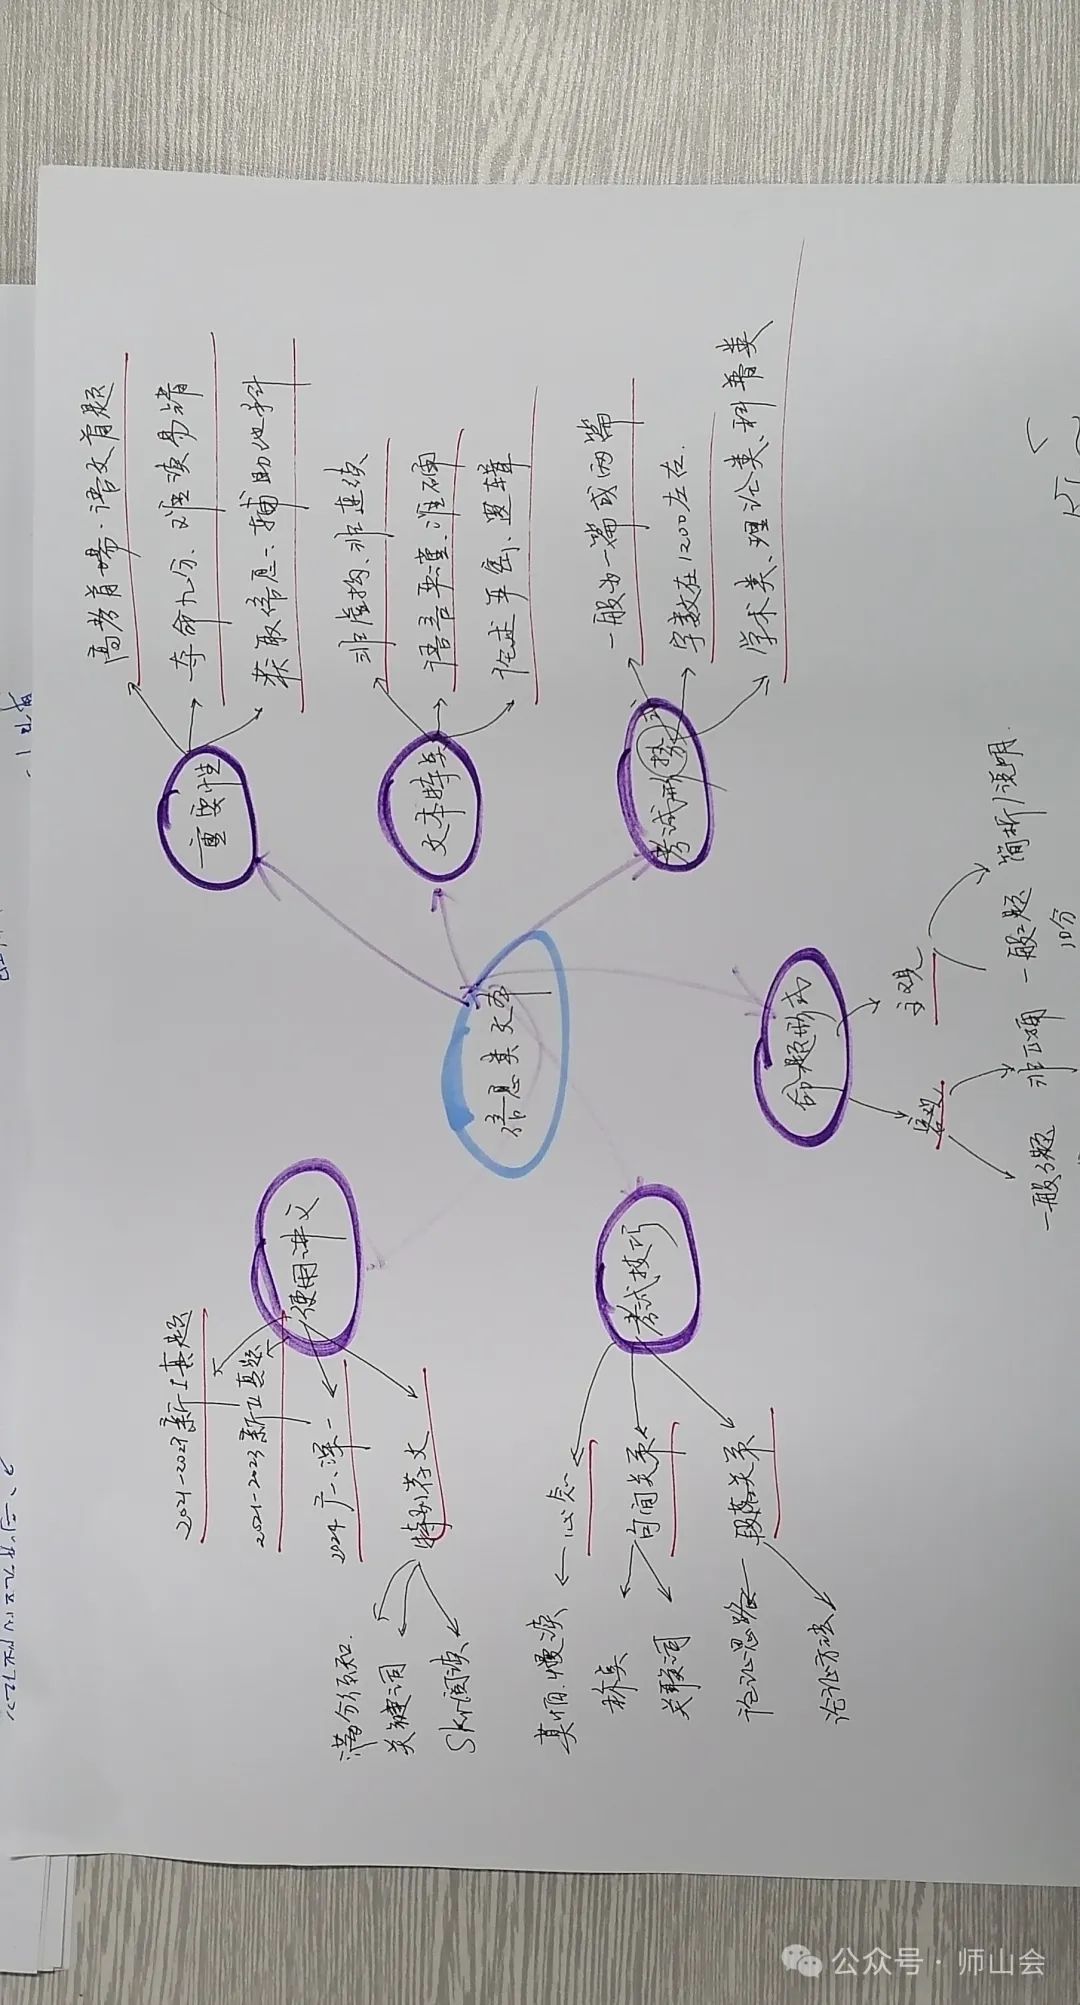 信息类文本
重要性
高考首场·语文首题
夺命九分、难读易错
获取信息、辅助他科
文本特点
非虚构、非连续
语言严谨、准确
论述平实、逻辑
考试形势
式
一般为一篇或两篇
字数在1200左右.
学术类、理论类、科普类
命题形式
主观
一般2题 简析/说明.
10分
客观
非正确
一般3题
考试技巧
心态
莫慌.慢读
句间关系
标点
关联词
段落关系
论证思路
论证方法
使用讲义
2021-2023新I真题
2021-2023新II真题
2024广一、深一
特别荐文
满分须知.
关键词
Skr阅读
公众号·师山会